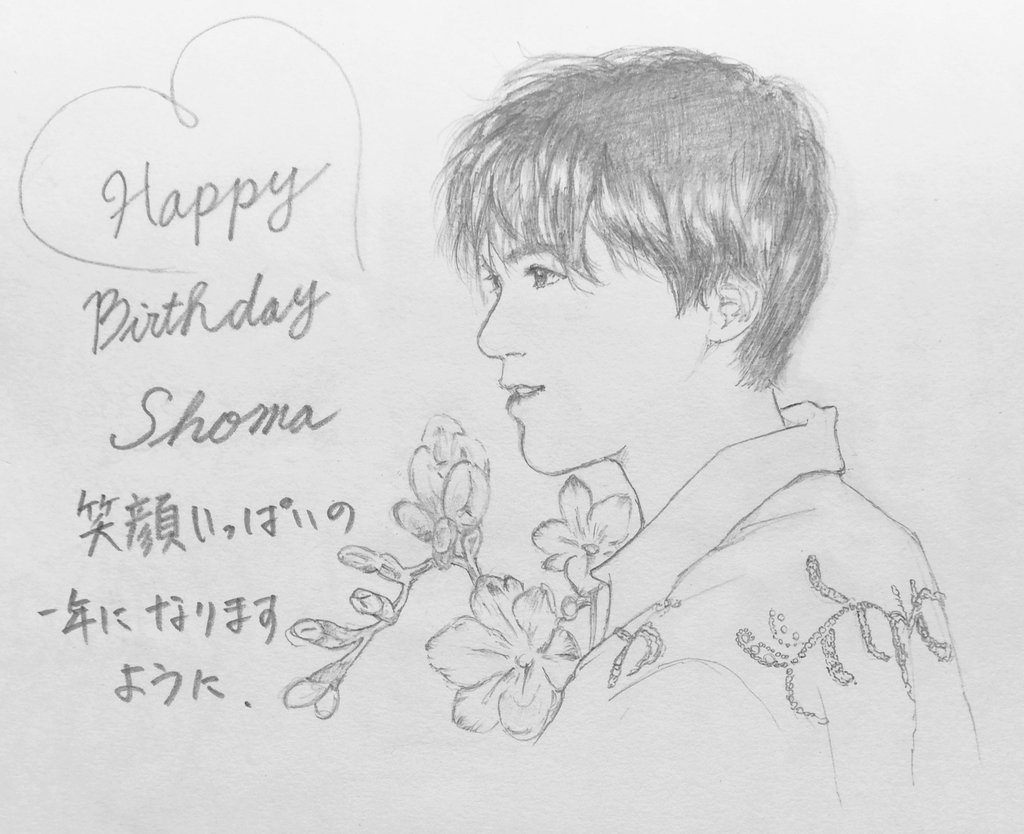 Happy
Birthday
Shoma
笑顔いっぱいの
一年になります
ように.